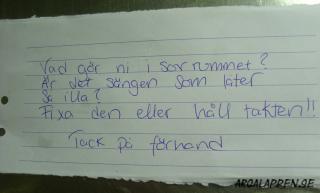 Vad gör ni i sovrummet?
Är det sängen som låter
Så illa?
Fixa den eller håll takten!!
Tack på förhand
ARGALAPPEN.SE